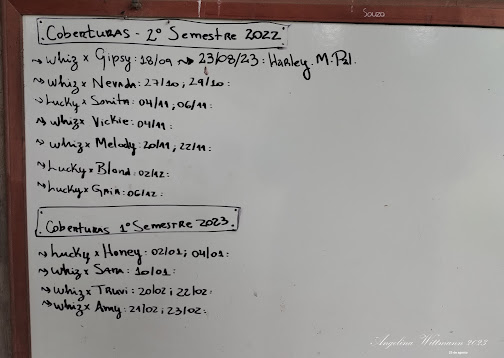 Souza
Coberturas - 2º Semestre 2022
Whiz x Gipsy: 18/09 ~> 23/08/23: Harley. M.Pal.
Whiz x Nevada: 27/10; 29/10:
Lucky x Sonita: 04/11; 06/11:
Whiz x Vickie: 04/11:
Whiz x Melody: 20/11; 22/11:
Lucky x Blond: 02/12:
Lucky x Gaia: 06/12:
Coberturas 1º Semestre 2023
Lucky x Honey: 02/01; 04/01:
Whiz x Sara: 10/01:
Whiz x Truvi: 20/02; 22/02:
Whiz x Amy: 21/02; 23/02:
Angelina Wittmann 2023